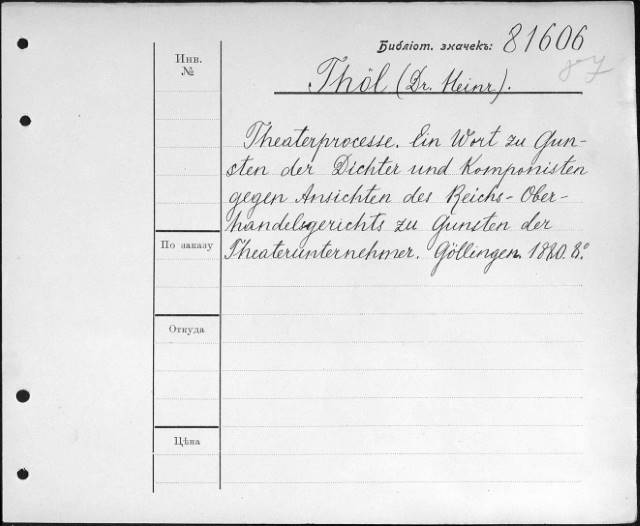 Библіот. значекъ: 81606
Инв.
№
Thöl (Dr. Heinr).
Theaterprocesse. Ein Wort zu Gun-
sten der Dichter und Komponisten
gegen Ansichten des Reichs-Ober-
handelsgerichts zu Gunsten der
Theaterunternehmer. Göllingen. 1880. 8.º
По заказу
Откуда
Цѣна